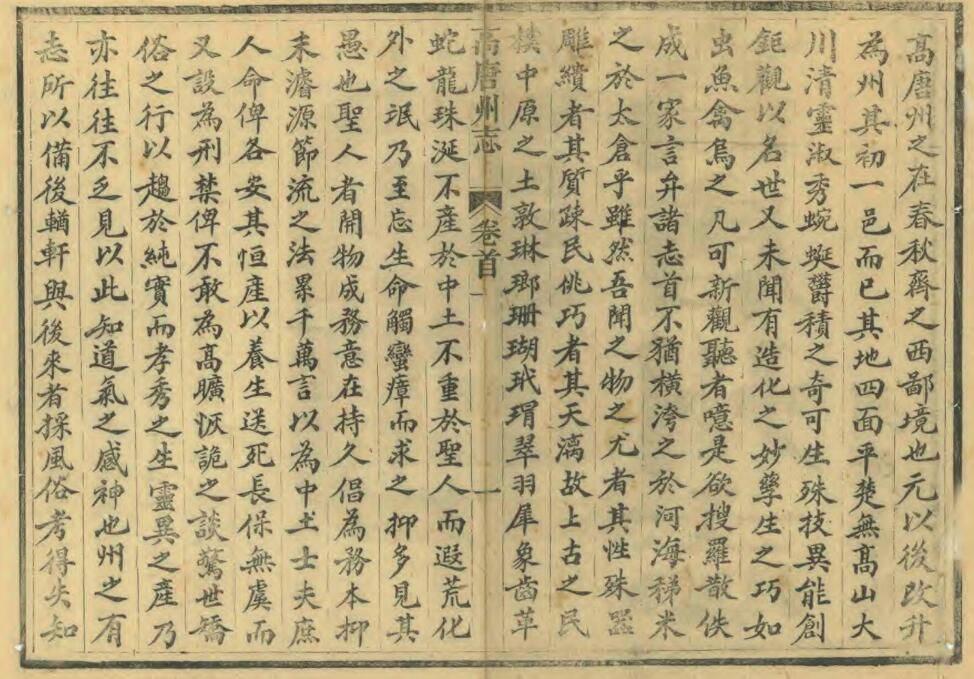 高唐州之在春秋齊之西鄙境也元以後改升
為州其初一邑而已其地四面平楚無高山大
川清靈淑秀蜿蜒欝積之奇可生殊技異能創
鉅觀以名世又未聞有造化之妙孳生之巧如
出魚禽鳥之凡可新觀聽者噫是欲搜羅散佚
成一家言弁諸志首不猶橫洿之於河海稊米
之於太倉乎雖然吾聞之物之尤者其性殊器
雕繢者其質疎民佻巧者其天漓故上古之民
樸中原之土敦琳瑯珊瑚玳瑁翠羽犀象齒革
高唐州志 卷首 一
蛇龍珠涎不產於中土不重於聖人而遐荒化
外之珉乃至忘生命觸蠻瘴而求之抑多見其
愚也聖人者開物成務意在持久倡為務本抑
末濬源節流之法累千萬言以為中土士夫庶
人命俾各安其恒產以養生送死長保無虞而
又設為刑禁俾不敢為高曠恢詭之談驚世矯
俗之行以趨於純實而孝秀之生靈異之產乃
亦往往不乏見以此知道氣之感神也州之有
志所以備後輶軒與後來者採風俗考得失知